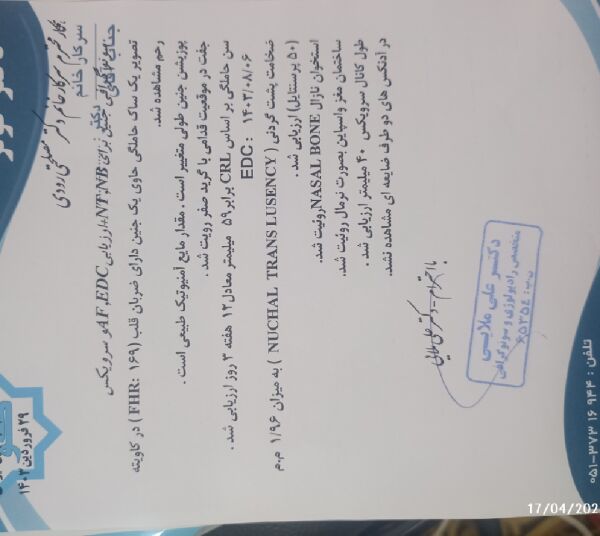 ۲۹ فروردین ۱۴۰۳
همکار محترم سرکار خانم دکتر مصطفی رودی
سرکار خانم
سونوگرافی جنین برای NT,NB ارزیابی AF,EDC و سرویکس
تصویر یک ساک حاملگی حاوی یک جنین دارای ضربان قلب (FHR: ۱۶۹) در کاویته
رحم مشاهده شد.
پوزیشن جنین طولی متغییر است . مقدار مایع آمنیوتیک طبیعی است .
جفت در موقعیت قدامی با گرید صفر رویت شد .
سن حاملگی بر اساس CRL برابر ۵۹ میلیمتر معادل ۱۲ هفته ۳ روز ارزیابی شد .
EDC : ۱۴۰۳/۰۸/۰۶
ضخامت پشت گردنی ( NUCHAL TRANS LUSENCY ) به میزان ۱/۹۶ م.م
(۵۰ پرسنتایل) ارزیابی شد .
استخوان نازال NASAL BONE روئیت شد.
ساختمان مغز واسپاین بصورت نرمال روئیت شد.
طول کانال سرویکس ۴۰ میلیمتر ارزیابی شد .
در آدنکس های دو طرف ضایعه ای مشاهده نشد.
با احترام - دکتر علی ملایی
دکتر علی ملایی
متخصص رادیولوژی و سونوگرافی
ن.پ: ۶۵۳۵۴
تلفن : ۹۴۴ ۱۶ ۳۷۳-۰۵۱
17/04/202